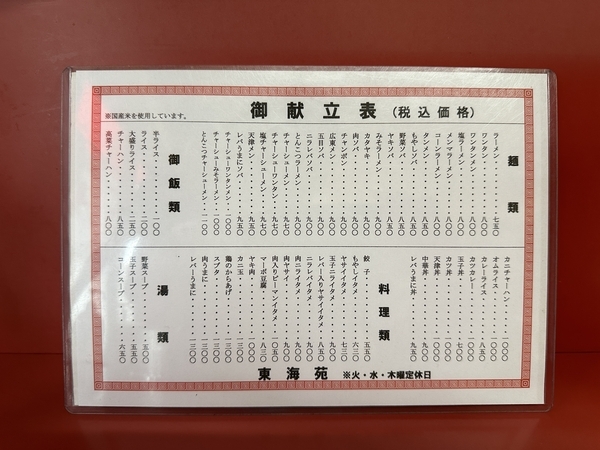 御献立表 (税込価格)
※国産米を使用しています。
麺類
ラーメン・・・・・七五〇
ワンタン・・・・・八〇〇
ワンタンメン・・・・・九〇〇
塩ラーメン・・・・・八〇〇
メンマラーメン・・・・・八〇〇
コーンラーメン・・・・・八〇〇
タンメン・・・・・八五〇
もやしソバ・・・・・八五〇
野菜ソバ・・・・・八五〇
ヤキソバ・・・・・八五〇
みそラーメン・・・・・九〇〇
カタヤキ・・・・・九〇〇
肉ソバ・・・・・九〇〇
チャンポン・・・・・九〇〇
広東メン・・・・・九〇〇
五目ソバ・・・・・九〇〇
ニラレバソバ・・・・・九〇〇
とんこつラーメン・・・・・九〇〇
チャーシューメン・・・・・九〇〇
チャーシューワンタン・・・・・九七〇
塩チャーシューメン・・・・・九七〇
天津メン・・・・・九五〇
レバうまにソバ・・・・・九五〇
チャーシューワンタンメン・・・一〇〇〇
チャーシューみそラーメン・・・一〇〇〇
とんこつチャーシューメン・・・一一〇〇
御飯類
半ライス・・・・・一〇〇
ライス・・・・・二〇〇
大盛りライス・・・・・二五〇
チャーハン・・・・・八五〇
高菜チャーハン・・・・・八〇〇
カニチャーハン・・・・・一〇〇〇
オムライス・・・・・一〇〇〇
カレーライス・・・・・八五〇
カツカレー・・・・・一〇〇〇
玉子丼・・・・・九〇〇
カツ丼・・・・・一〇〇〇
天津丼・・・・・一〇〇〇
中華丼・・・・・九〇〇
レバうまに丼・・・・・九五〇
料理類
餃子・・・・・五五〇
もやしイタメ・・・・・六三〇
ヤサイイタメ・・・・・七三〇
玉子ニライタメ・・・・・九〇〇
レバー入りヤサイイタメ・・・九〇〇
ニラレバイタメ・・・・・九〇〇
肉ニライタメ・・・・・九〇〇
肉ヤサイ・・・・・九〇〇
肉入りピーマンイタメ・・・一〇五〇
マーボ豆腐・・・・・八三〇
ヤキ肉・・・・・一〇〇〇
カニ玉・・・・・一三〇〇
鶏のからあげ・・・・・一三〇〇
スブタ・・・・・一三〇〇
肉うまに・・・・・一三〇〇
レバーうまに・・・・・一三〇〇
湯類
野菜スープ・・・・・五〇〇
玉子スープ・・・・・五五〇
コーンスープ・・・・・六五〇
東海苑 ※火・水・木曜定休日